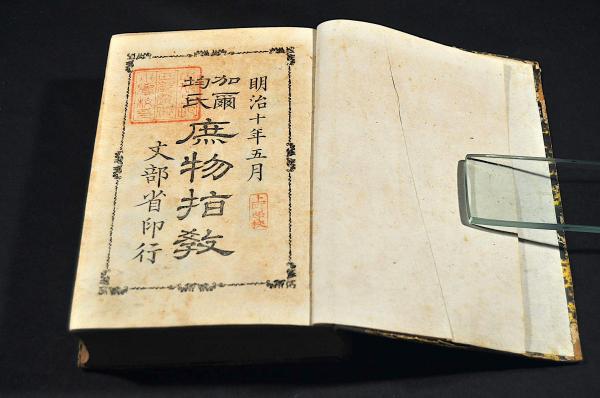 明治十年五月
加爾均氏
庶物指教
文部省印行